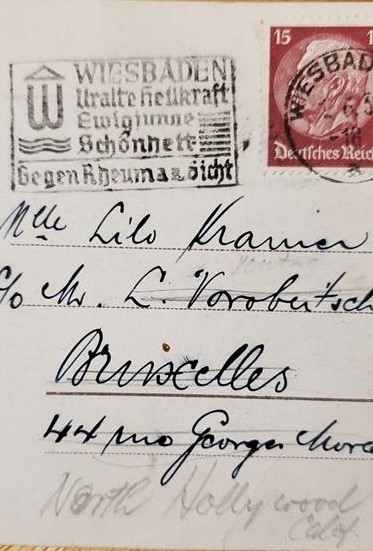 WIESBADEN
Uralte Heilkraft
Ewigjunge
Schönheit
Gegen Rheuma u. Gicht
15 1
WIESBAD
Deutsches Reic
Mlle Lilo Kramer
c/o Mr. L. Vorobeitsch
Bruxelles
44 rue Georges More
North Hollywood
Calif.